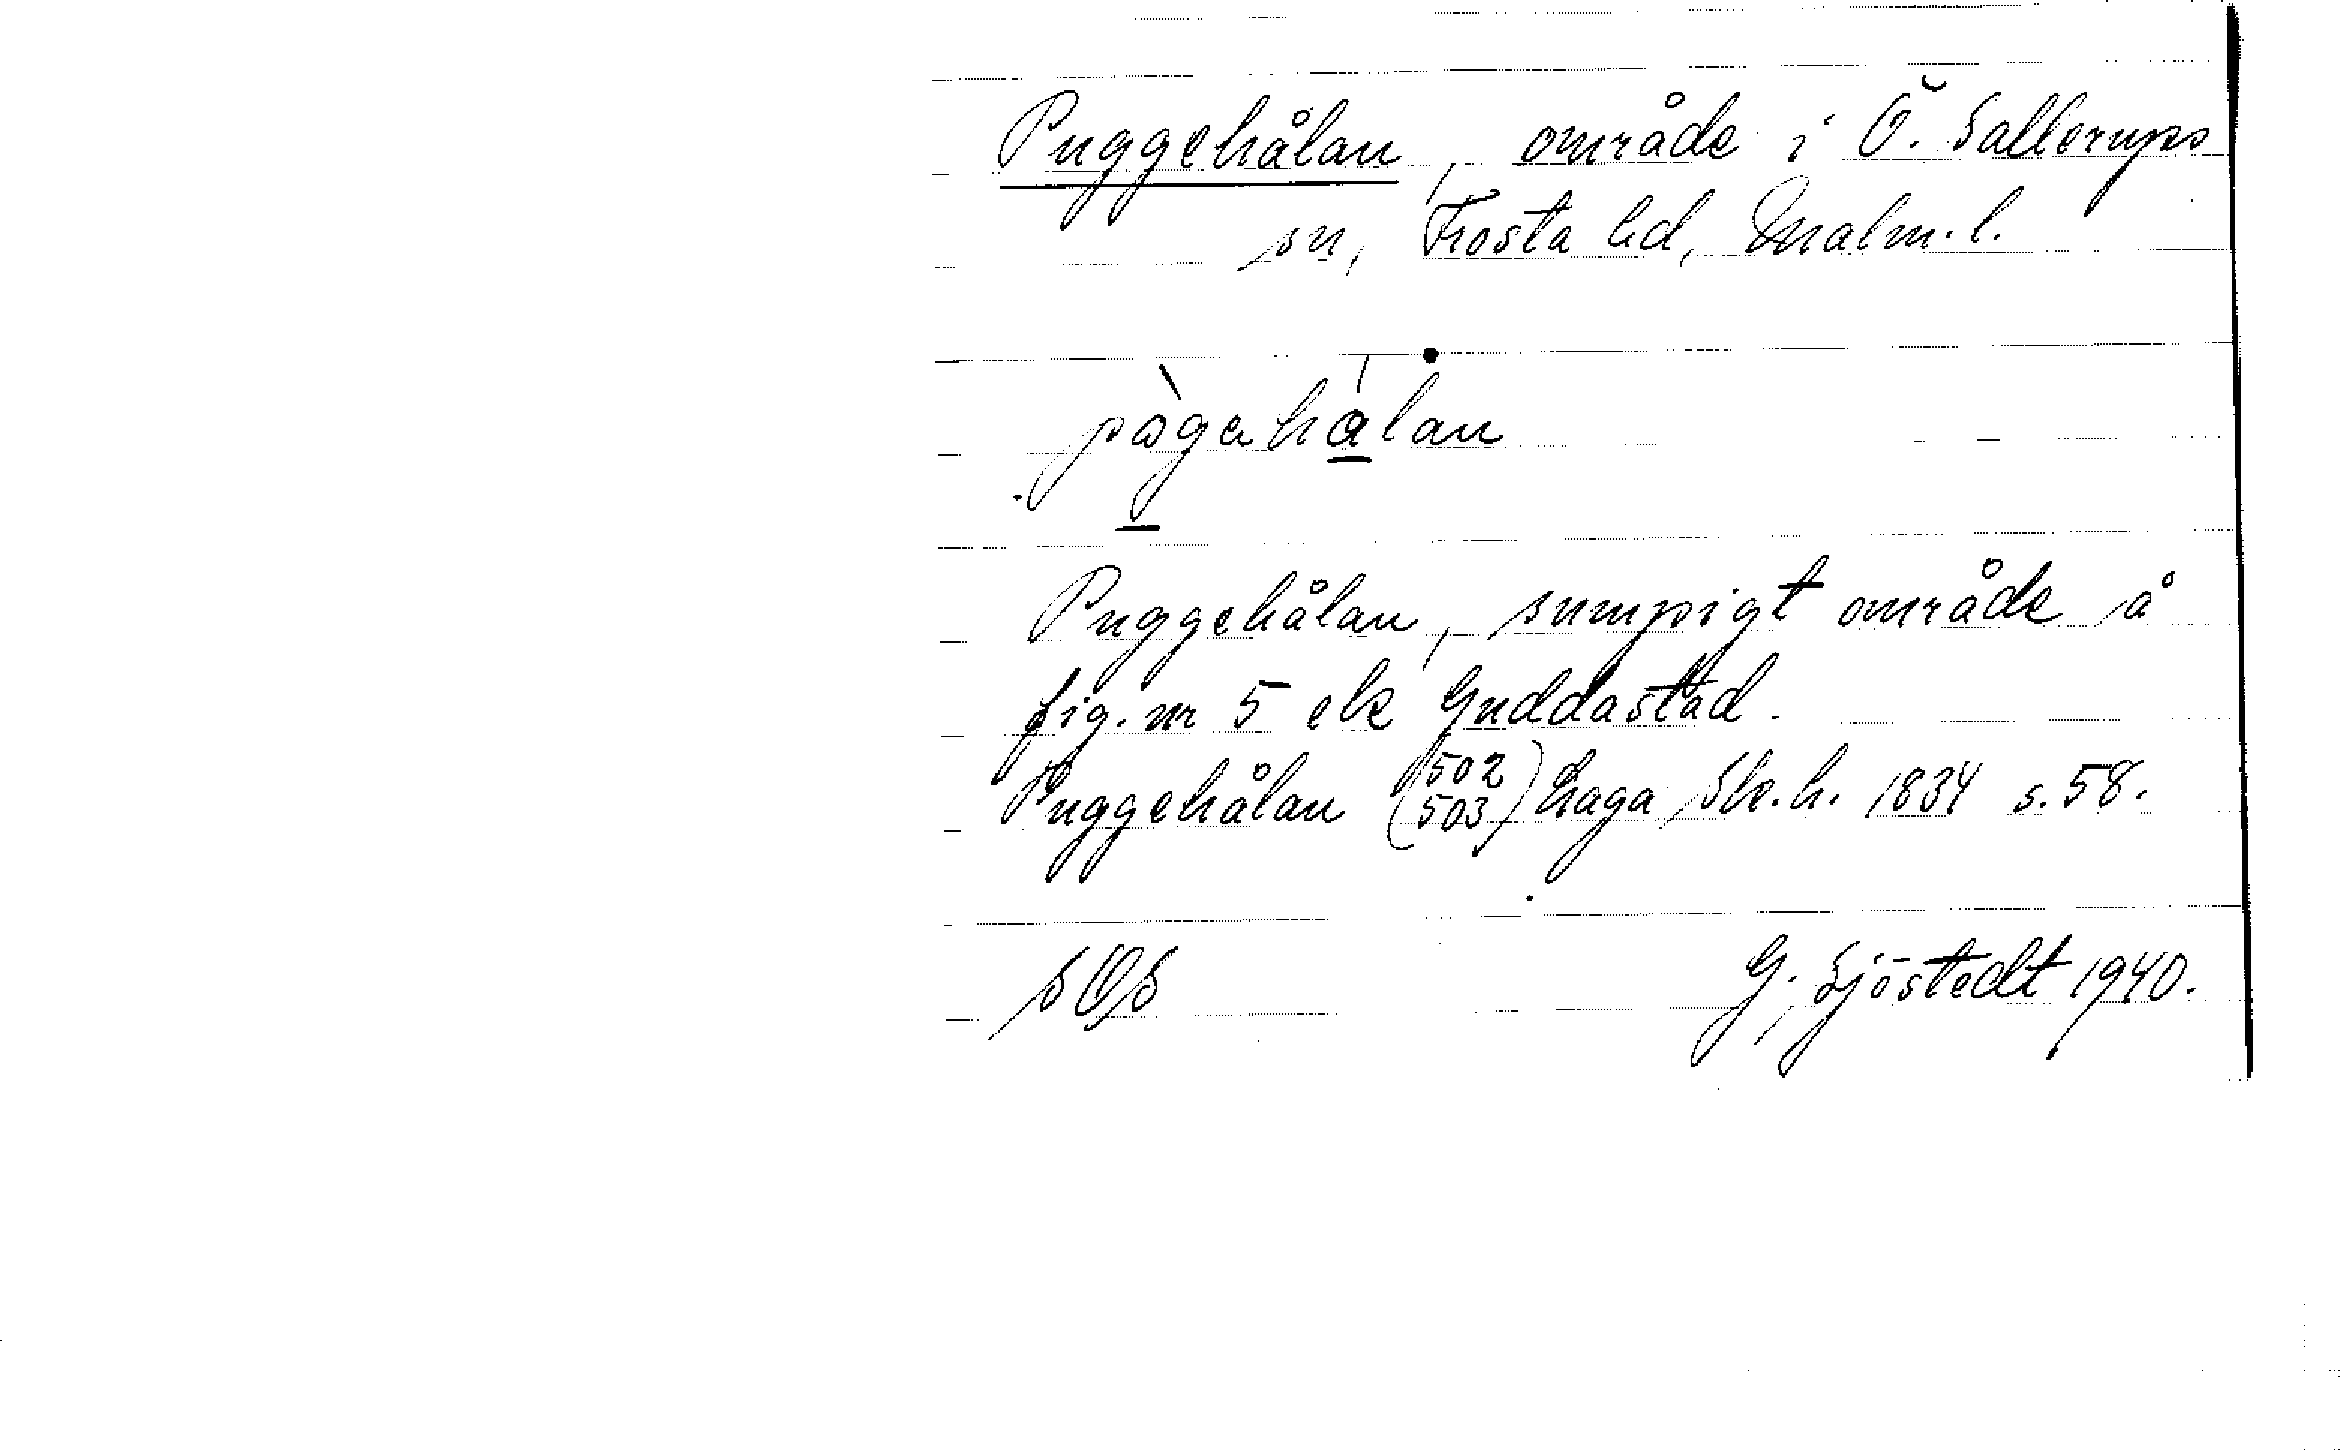 Puggehålan, område i Ö. Sallerups
sn, Frosta hd, Malm. l.
pògahálan
Puggehålan, sumpigt område å
fig. nr 5 ek Guddastad.
Puggehålan (502 503) haga Sk. h. 1834 s. 58.
SOS G. Sjöstedt 1940.